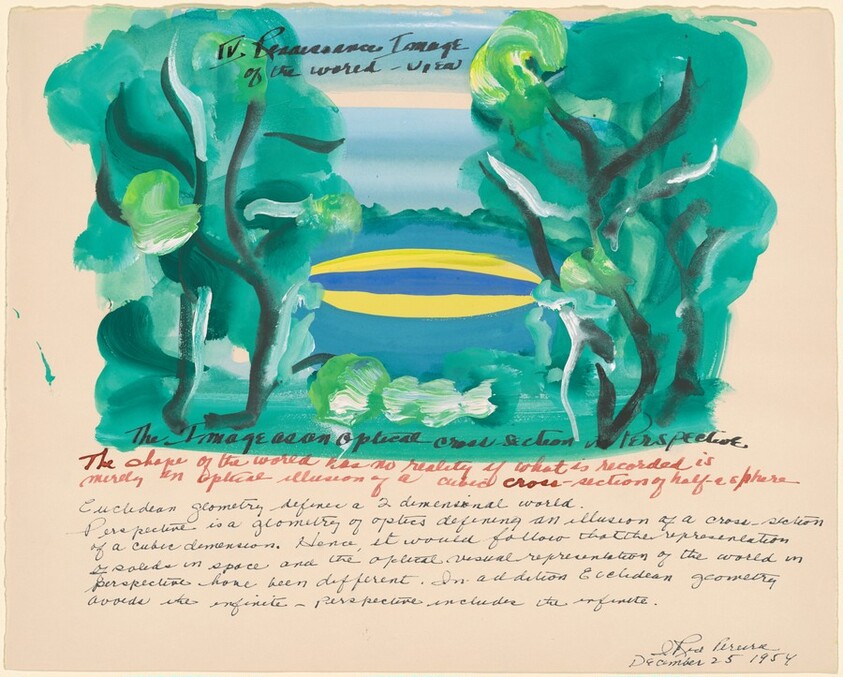 IV. Renaissance Image
of the world-view
The Image as an optical cross section in Perspective
The shape of the world has no reality if what is recorded is
merely an optical illusion of a cubic cross-section of half-a sphere
Euclidean geometry defines a 2 dimensional world.
Perspective is a geometry of optics defining an illusion of a cross-section
of a cubic dimension. Hence, it would follow that the representation
of solids in space and the optical visual representation of the world in
perspective have been different. In addition Euclidean geometry
avoids the infinite - Perspective includes the infinite.
I Rice Pereira
December 25 1954